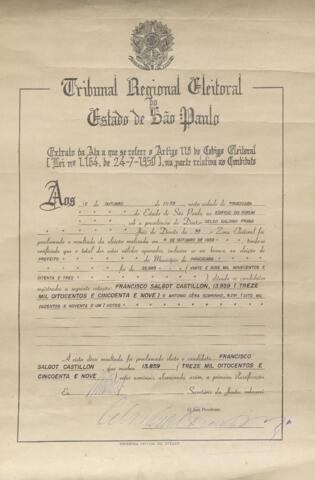 Tribunal Regional Eleitoral
do
Estado de São Paulo
Extrato da Ata a que se refere o Artigo 118 do Codigo Eleitoral
(Lei nº 1.164, de 24-7-1950), na parte relativa ao Candidato
Aos OUTUBRO nesta cidade de PIRACICABA
do Estado de São Paulo, no EDIFICIO DO FORUM
sob a presidencia do Doutor CELSO GALDINO FRAGA
Juiz de Direito da Zona Eleitoral foi
proclamado o resultado da eleição realizada em DE OUTUBRO DE 1959, tendo-se
verificado que o total dos votos validos apurados, inclusive os em branco, na eleição de
PREFEITO do Municipio de PIRACICABA
foi de (VINTE E DOIS MIL NOVECENTOS E
OITENTA E TRES) dêsde os candidatos
registrados a seguinte votação: FRANCISCO SALGOT CASTILLON, 13.859 (TREZE
MIL OITOCENTOS E CINCOENTA E NOVE) E ANTONIO CÊRA SOBRINHO, (OITO MIL
E UM) VOTOS
A vista dêsse resultado, foi proclamado eleito o candidato FRANCISCO
SALGOT CASTILLON, que recebeu 13.859 (TREZE MIL OITOCENTOS E
CINCOENTA E NOVE) votos nominais alcançando, assim, a primeira classificação.
Eu, Secretário da Junta, subscrevi.
O Juiz Presidente